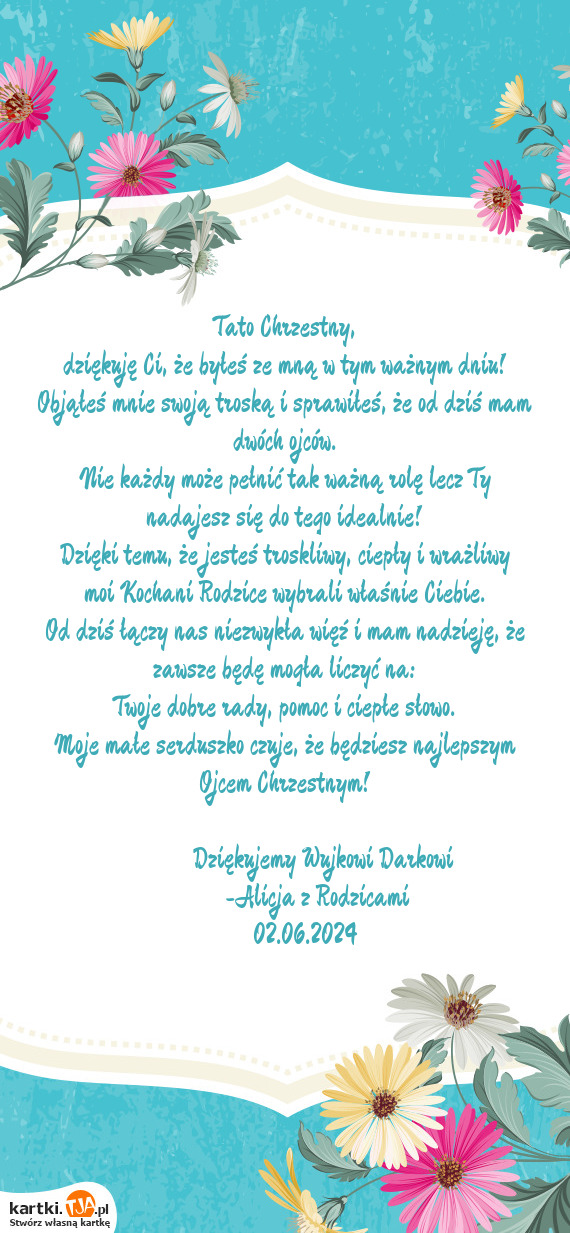 Tato Chrzestny,
dziękuję Ci, że byłeś ze mną w tym ważnym dniu!
Objąłeś mnie swoją troską i sprawiłeś, że od dziś mam
dwóch ojców.
Nie każdy może pełnić tak ważną rolę lecz Ty
nadajesz się do tego idealnie!
Dzięki temu, że jesteś troskliwy, ciepły i wrażliwy
moi Kochani Rodzice wybrali właśnie Ciebie.
Od dziś łączy nas niezwykła więź i mam nadzieję, że
zawsze będę mogła liczyć na:
Twoje dobre rady, pomoc i ciepłe słowo.
Moje małe serduszko czuje, że będziesz najlepszym
Ojcem Chrzestnym!
Dziękujemy Wujkowi Darkowi
-Alicja z Rodzicami
02.06.2024
kartki.TJA.pl
Stwórz własną kartkę